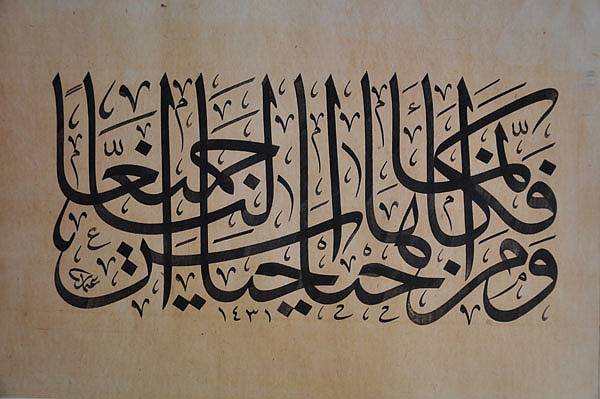 وَمَنْ أَحْيَاهَا فَكَأَنَّمَا أَحْيَا النَّاسَ جَمِيعًا
١٤٣١